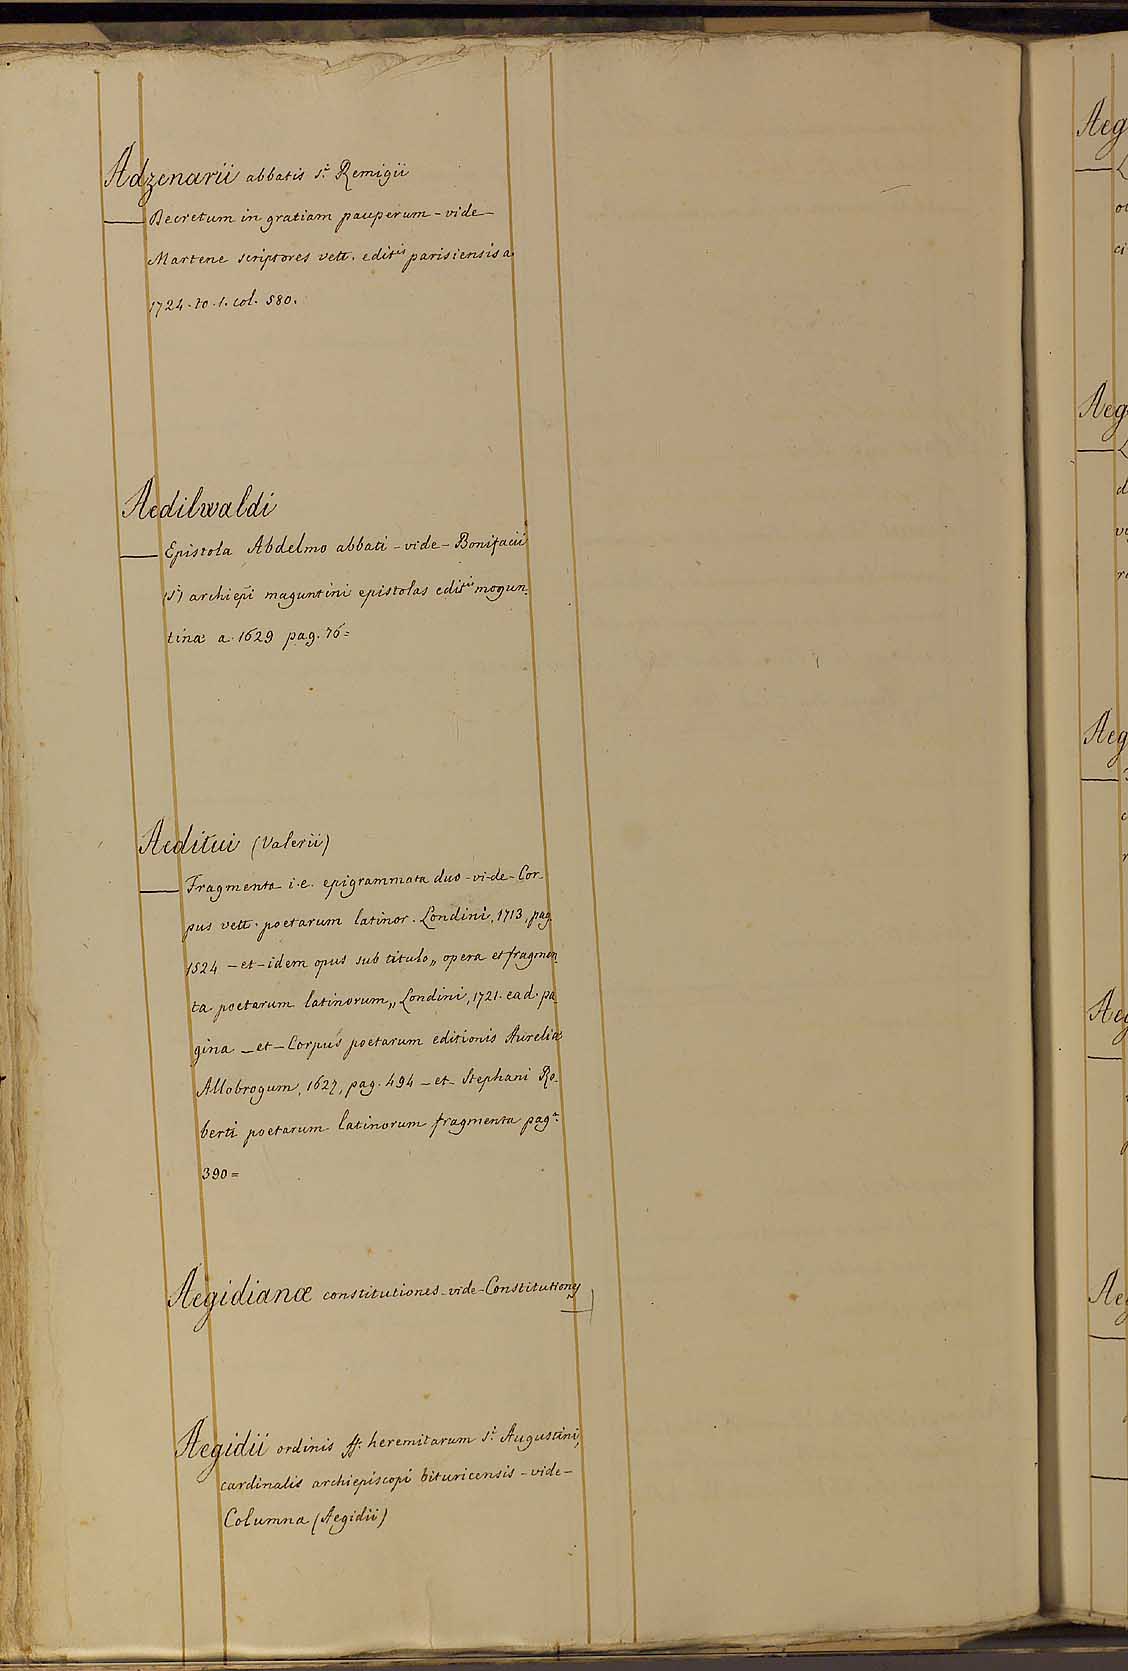 Adzenarii abbatis s.i Remigii
Decretum in gratiam pauperum - vide -
Martene scriptores vett. editis parisiensis a.
1724. to. 1. col. 580.
Aedilwaldi
Epistola Abdelmo abbati - vide - Bonifacii
(s.i) archiepi maguntini epistolas editis mogun-
tinæ a. 1629 pag. 76=
Aeditui (Valerii)
Fragmenta i.e. epigrammata duo - vi-de - Cor-
pus vett. poetarum latinor. Londini, 1713, pag.
1524 - et - idem opus sub titulo „ opera et fragmen-
ta poetarum latinorum „ Londini, 1721. ead. pa-
gina - et - Corpus poetarum editionis Aureliæ
Allobrogum, 1627, pag. 494 - et - Stephani Ro-
berti poetarum latinorum fragmenta pag.
390=
Aegidianæ constitutiones - vide - Constitutiones
Aegidii ordinis ff. heremitarum s.i Augustini,
cardinalis archiepiscopi bituricensis - vide -
Columna (Aegidii)
Aeg
Aeg
Aeg
Aeg
Aeg